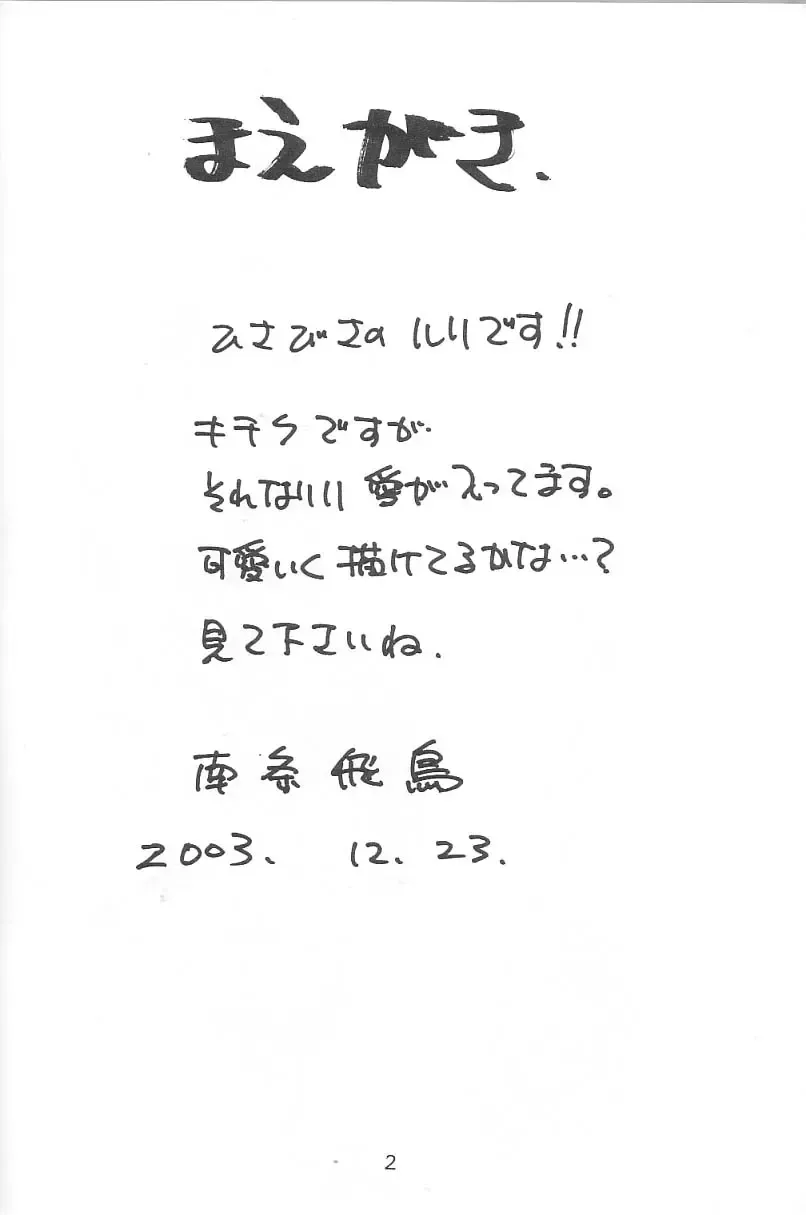 まえがき.
ひさびさの ししりです!!
キチクですが
それなりに 愛が入ってます。
可愛いく描けてるかな…?
見て下さいね.
南条飛鳥
2003. 12. 23.
2